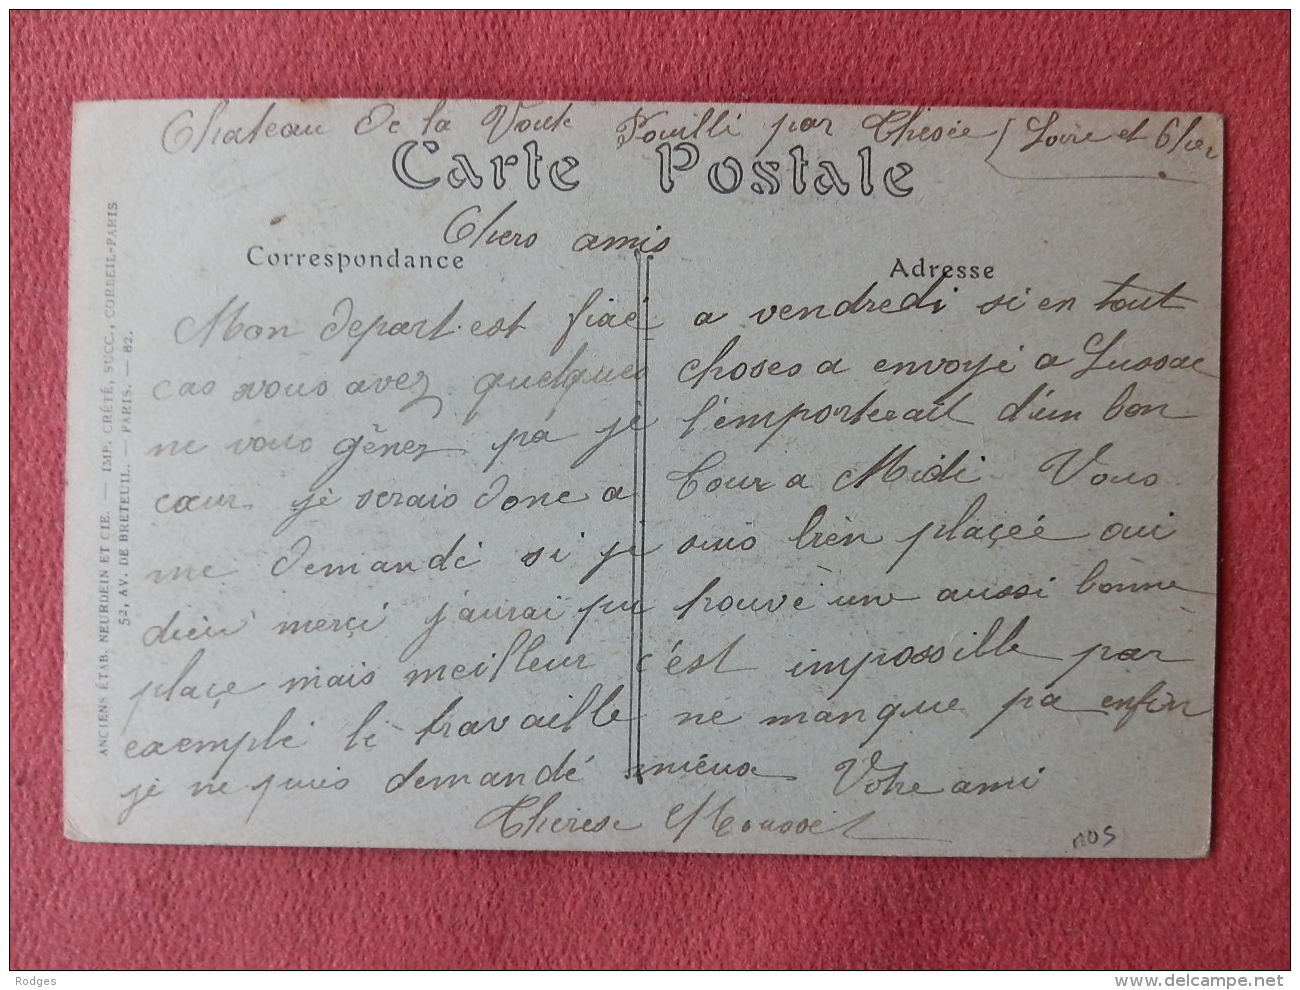 Chateau de la Voute Pouilli par Thesée (Loire et Cher
Carte Postale
Chers amis
Correspondance
Adresse
Mon depart est fixé a vendredi si en tout
cas vous avez quelques choses a envoyé a Lussac
ne vous gênez pa je l'emporterait d'un bon
cœur je serais donc a Tour a Midi Vous
me demandé si je suis bien placéé oui
dieu merçi j'aurai pu trouvé une aussi bonne
place mais meilleur c'est impossible par
exemple le travaille ne manque pa enfin
je ne puis demandé mieux Votre ami
Therese Mousset
MOS
ANCIENS ÉTAB. NEURDEIN ET CIE. — IMP. CRÉTÉ, SUCC., CORBEIL-PARIS
52, AV. DE BRETEUIL. — PARIS. — 82.
Rodges
www.delcampe.net